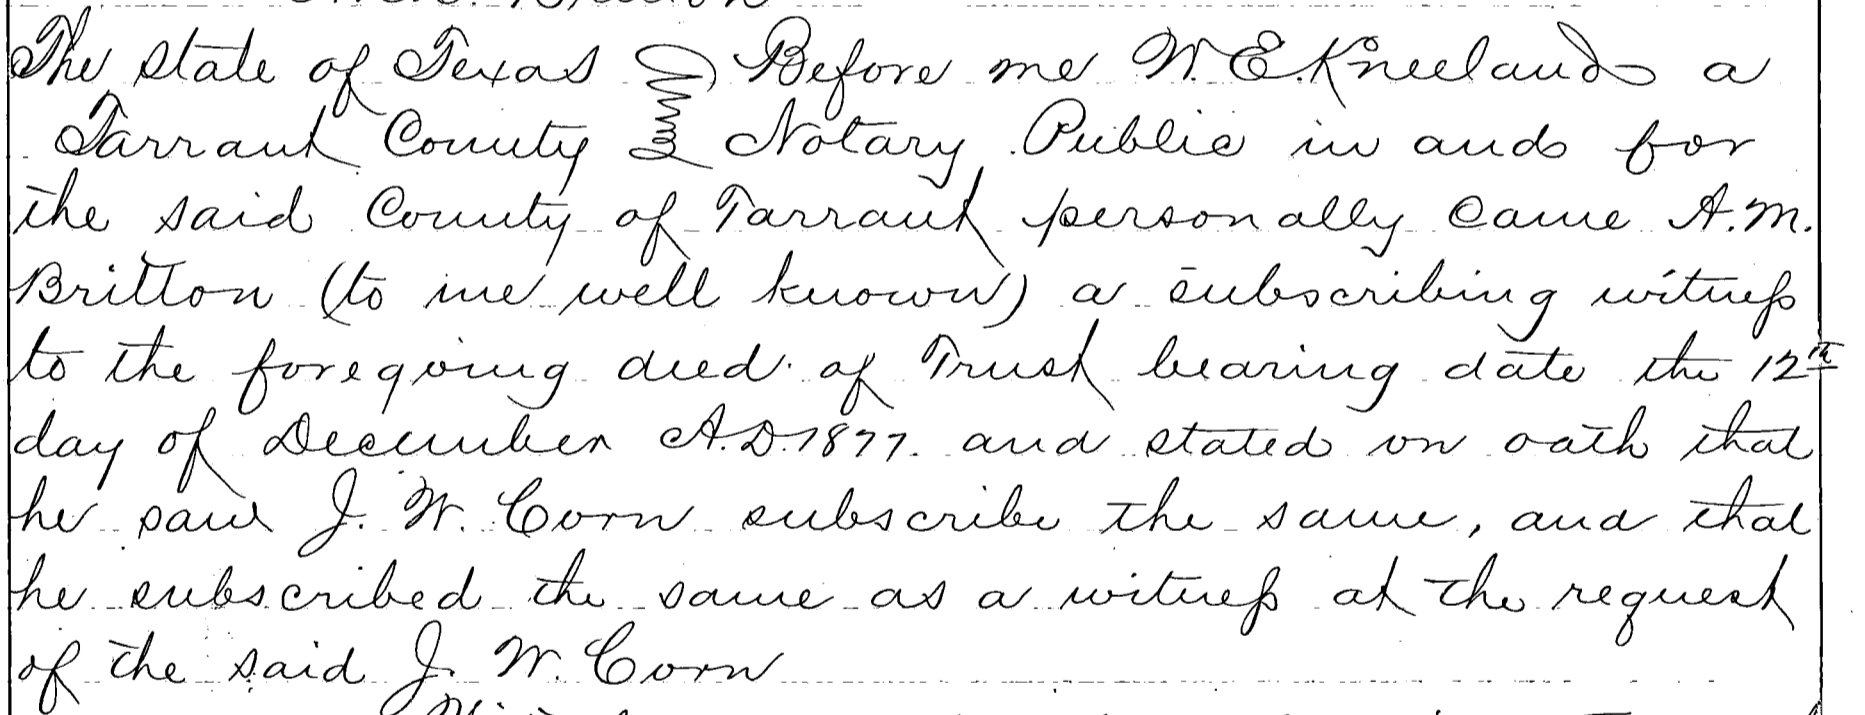 The state of Texas Before me W. E. Kneeland a
Tarrant County Notary Public in and for
the said County of Tarrant personally came A.M.
Britton (to me well known) a subscribing witness
to the foregoing deed of Trust bearing date the 12th
day of December A.D. 1877. and stated on oath that
he saw J. W. Corn subscribe the same, and that
he subscribed the same as a witness at the request
of the said J. W. Corn